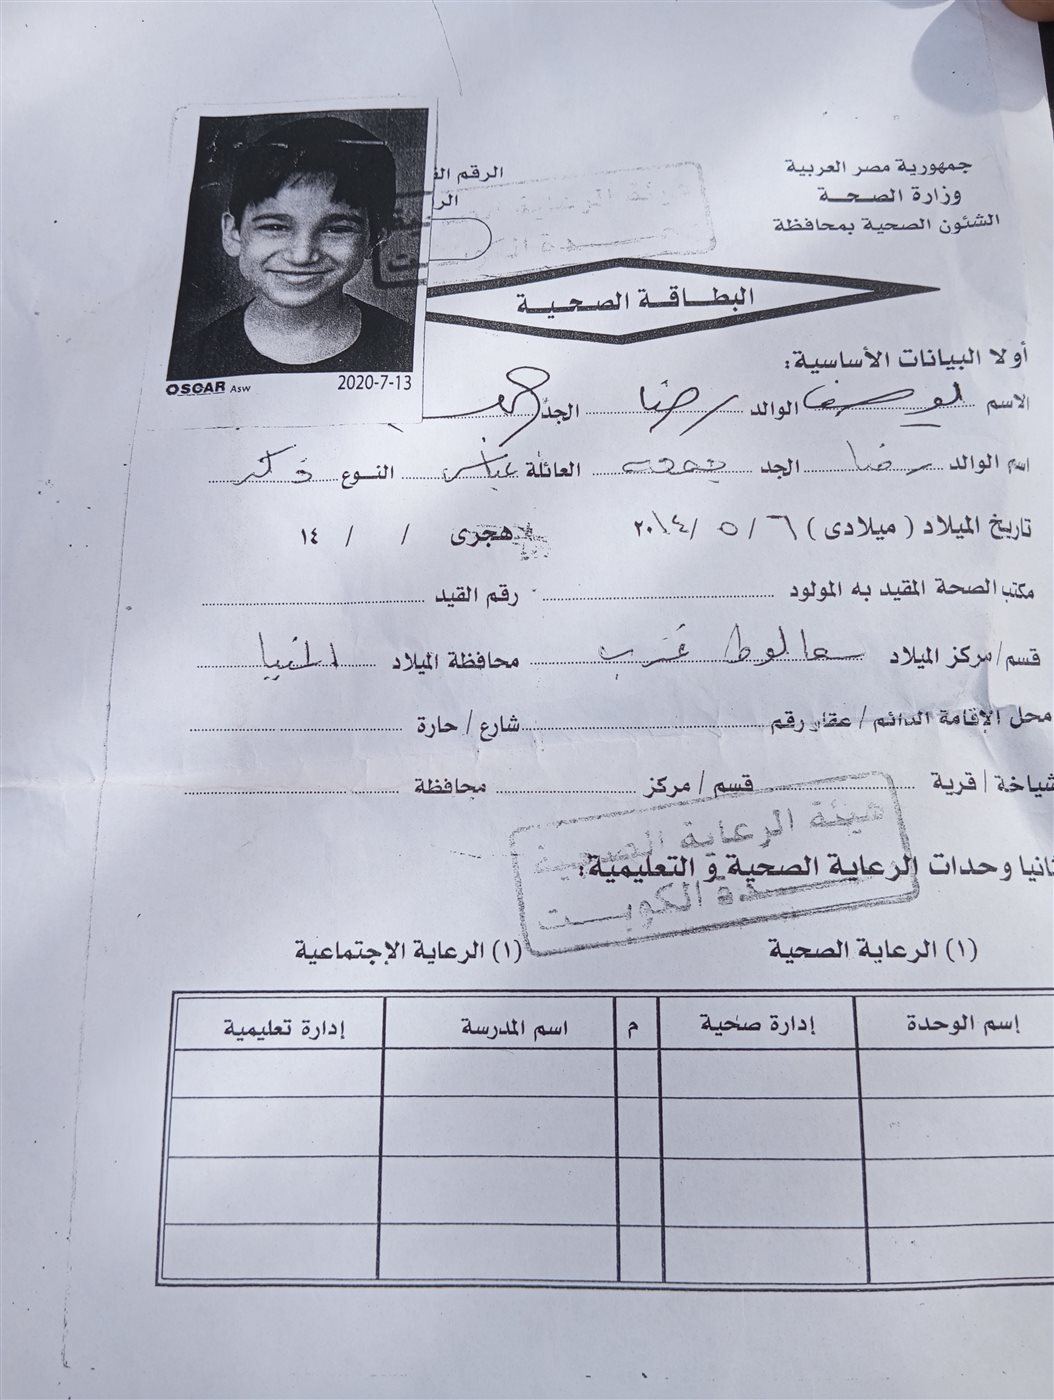 جمهورية مصر العربية
وزارة الصحـــة
الشئون الصحية بمحافظة
الرقم
البطـاقـة الصحيـة
OSCAR Asw
2020-7-13
أولا البيانات الأساسية:
الاسم يوسف الوالد رضا الجد
اسم الوالد رضا الجد جمعه العائلة عباس النـوع ذكر
تاريخ الميلاد ( ميلادى ) ٦ / ٥ / ٢٠١٤ هجرى / / ١٤
مكتب الصحة المقيد به المولود رقم القيد
قسم/مركز الميلاد سمالوط غرب محافظة الميلاد المنيا
محل الإقامة الدائم / عقار رقم شارع / حارة
شياخة / قرية قسم / مركز محافظة
هيئة الرعاية الصحية
ثانيا وحدات الرعاية الصحية و التعليمية:
الكويـــت
(١) الرعاية الصحية (١) الرعاية الإجتماعية
إسم الوحدة إدارة صحية م اسم المدرسة إدارة تعليمية